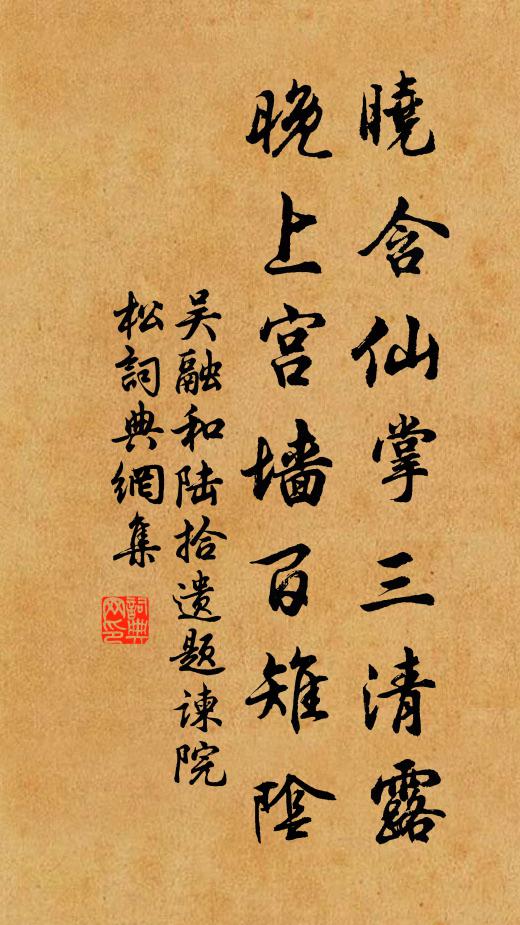 曉含仙掌三清露
晚上宫墙百雉陰
吴融和陆拾遗题谏院
松詞典網集
詞典
网印